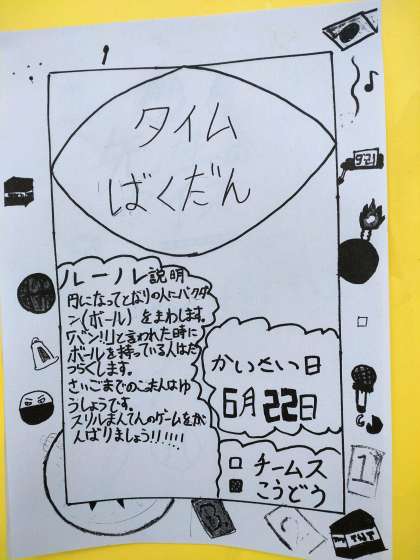 タイム
ばくだん
ルール説明
円になってとなりの人にバクダ
ン(ボール)をまわします。
「バン!!」と言われた時に
ボールを持っている人はだ
つらくします。
さいごまでのこた人はゆ
うしょうです。
スリルまんてんのゲームをが
んばりましょう!!!!!
かいさいつ日
6月22日
チームス
こうどう
TNT
1